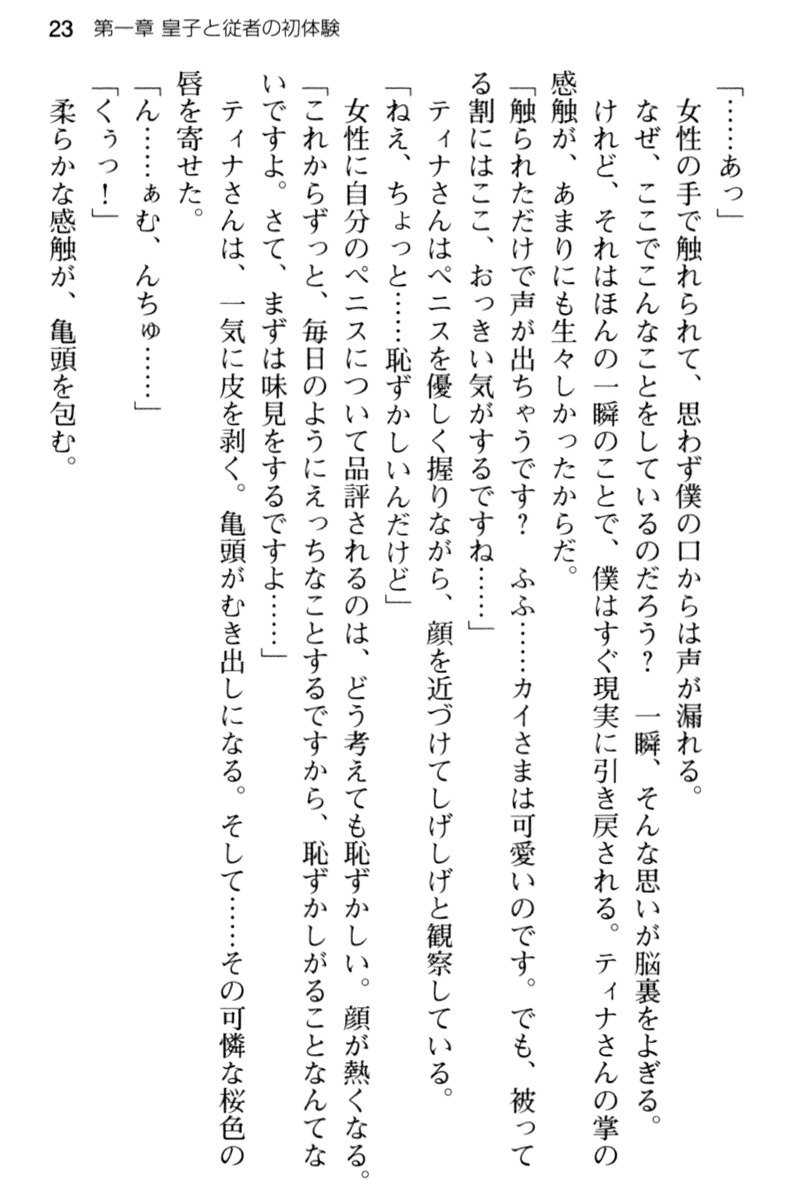 23 第一章 皇子と従者の初体験
「……あっ」
女性の手で触れられて、思わず僕の口からは声が漏れる。
なぜ、ここでこんなことをしているのだろう? 一瞬、そんな思いが脳裏をよぎる。
けれど、それはほんの一瞬のことで、僕はすぐ現実に引き戻される。ティナさんの掌の
感触が、あまりにも生々しかったからだ。
「触られただけで声が出ちゃうです? ふふ……カイさまは可愛いのです。でも、被って
る割にはここ、おっきい気がするですね……」
ティナさんはペニスを優しく握りながら、顔を近づけてしげしげと観察している。
「ねえ、ちょっと……恥ずかしいんだけど」
女性に自分のペニスについて品評されるのは、どう考えても恥ずかしい。顔が熱くなる。
「これからずっと、毎日のようにえっちなことするですから、恥ずかしがることなんてな
いですよ。さて、まずは味見をするですよ……」
ティナさんは、一気に皮を剥く。亀頭がむき出しになる。そして……その可憐な桜色の
唇を寄せた。
「ん……ぁむ、んちゅ……」
「くぅっ!」
柔らかな感触が、亀頭を包む。